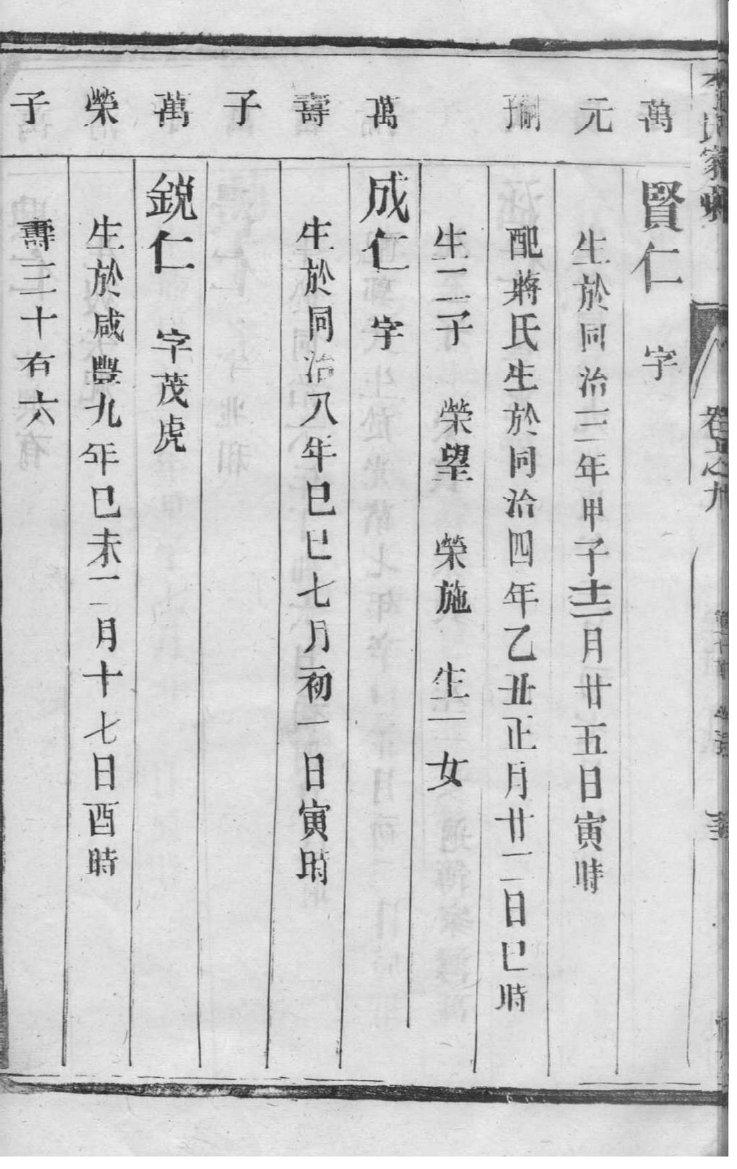 萬
賢仁 字
元
生於同治三年甲子十二月廿五日寅時
配蔣氏生於同治四年乙丑正月廿二日巳時
生二子 榮望 榮施 生一女
萬
成仁 字
壽
生於同治八年巳巳七月初一日寅時
子
萬
銳仁 字茂虎
榮
生於咸豐九年巳未二月十七日酉時
子
壽三十有六
氏家
卷之九